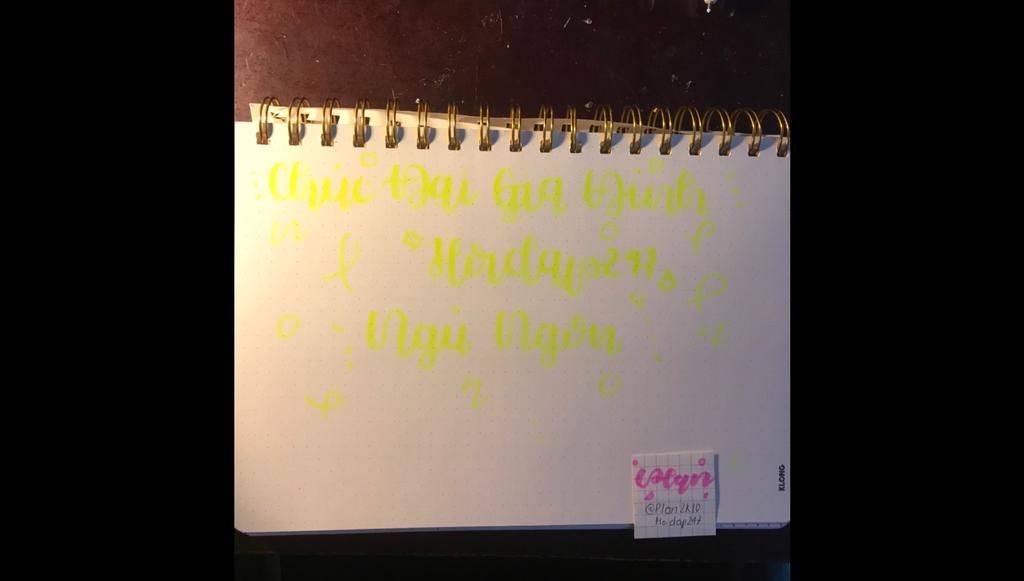 Chúc Đại Gia Đình
"Hoidap247"
Ngủ Ngon
Plan
@Plan2K10
Hoidap247
KLONG